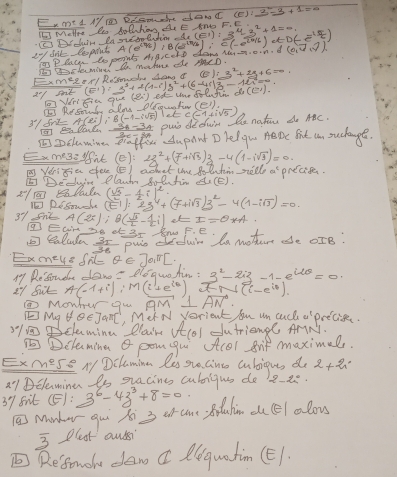 Ex n°1 1°/ a Résoudre dans ℂ (E): z² - z + 1 = 0
b Mettre les solutions de E sous F.E.
c Déduire la résolution de (E'): z⁴ - z² + 1 = 0.
2°/ Soit les points A(e^(iπ/6)); B(e^(i5π/6)); C( et D(
a Placer les points A, B, C et D dans un r.o.n.d (o, u, v).
b Déterminer la nature de ABCD.
Ex n°2: 1°/ Résoudre dans ℂ (E): z² + 2z + 6 = 0.
2°/ Soit (E'): z³ + 2(1-i)z² + (6-4i)z - 12i = 0.
a Vérifier que (2i) est une solution de (E').
b Résoudre alors l'équation (E').
3°/ Soit A(2i); B(-1-i√5) et C(-1+i√5).
a Calculer puis déduire la nature de ABC.
b Déterminer l'affixe du point D tel que ABDC soit un rectangle.
Ex n°3: Soit (E): 2z² + (7+i√3)z - 4(1-i√3) = 0.
a Vérifier que (E) admet une solution réelle à préciser.
b Déduire l'autre solution de (E).
2°/ a Calculer (√3/2 - 1/2 i)²
b Résoudre (E'): 2z⁴ + (7+i√3)z² - 4(1-i√3) = 0.
3°/ Soit A(2i); B(√3/2 - 1/2 i) et I = O*A.
a Ecrire z_B et z_I sous F.E.
b Calculer z_I/z_B puis déduire la nature de OIB.
Ex n°4: Soit θ ∈ ]0,π[.
1°/ Résoudre dans ℂ l'équation: z² - 2iz - 1 - e^(i2θ) = 0.
2°/ Soit A(-1+i); M(i+e^(iθ)) et N(i-e^(iθ)).
a Montrer que AM ⊥ AN.
b Mq ∀ θ ∈ ]0,π[, M et N varient sur un cercle à préciser.
3°/ a Déterminer l'aire A(θ) du triangle AMN.
b Déterminer θ pour que A(θ) soit maximale.
Ex n°5: 1°/ Déterminer les racines cubiques de 2+2i
2°/ Déterminer les racines cubiques de 2-2i
3°/ Soit (E): z⁶ - 4z³ + 8 = 0.
a Montrer que si z est une solution de (E) alors
z̄ l'est aussi
b Résoudre dans ℂ l'équation (E).